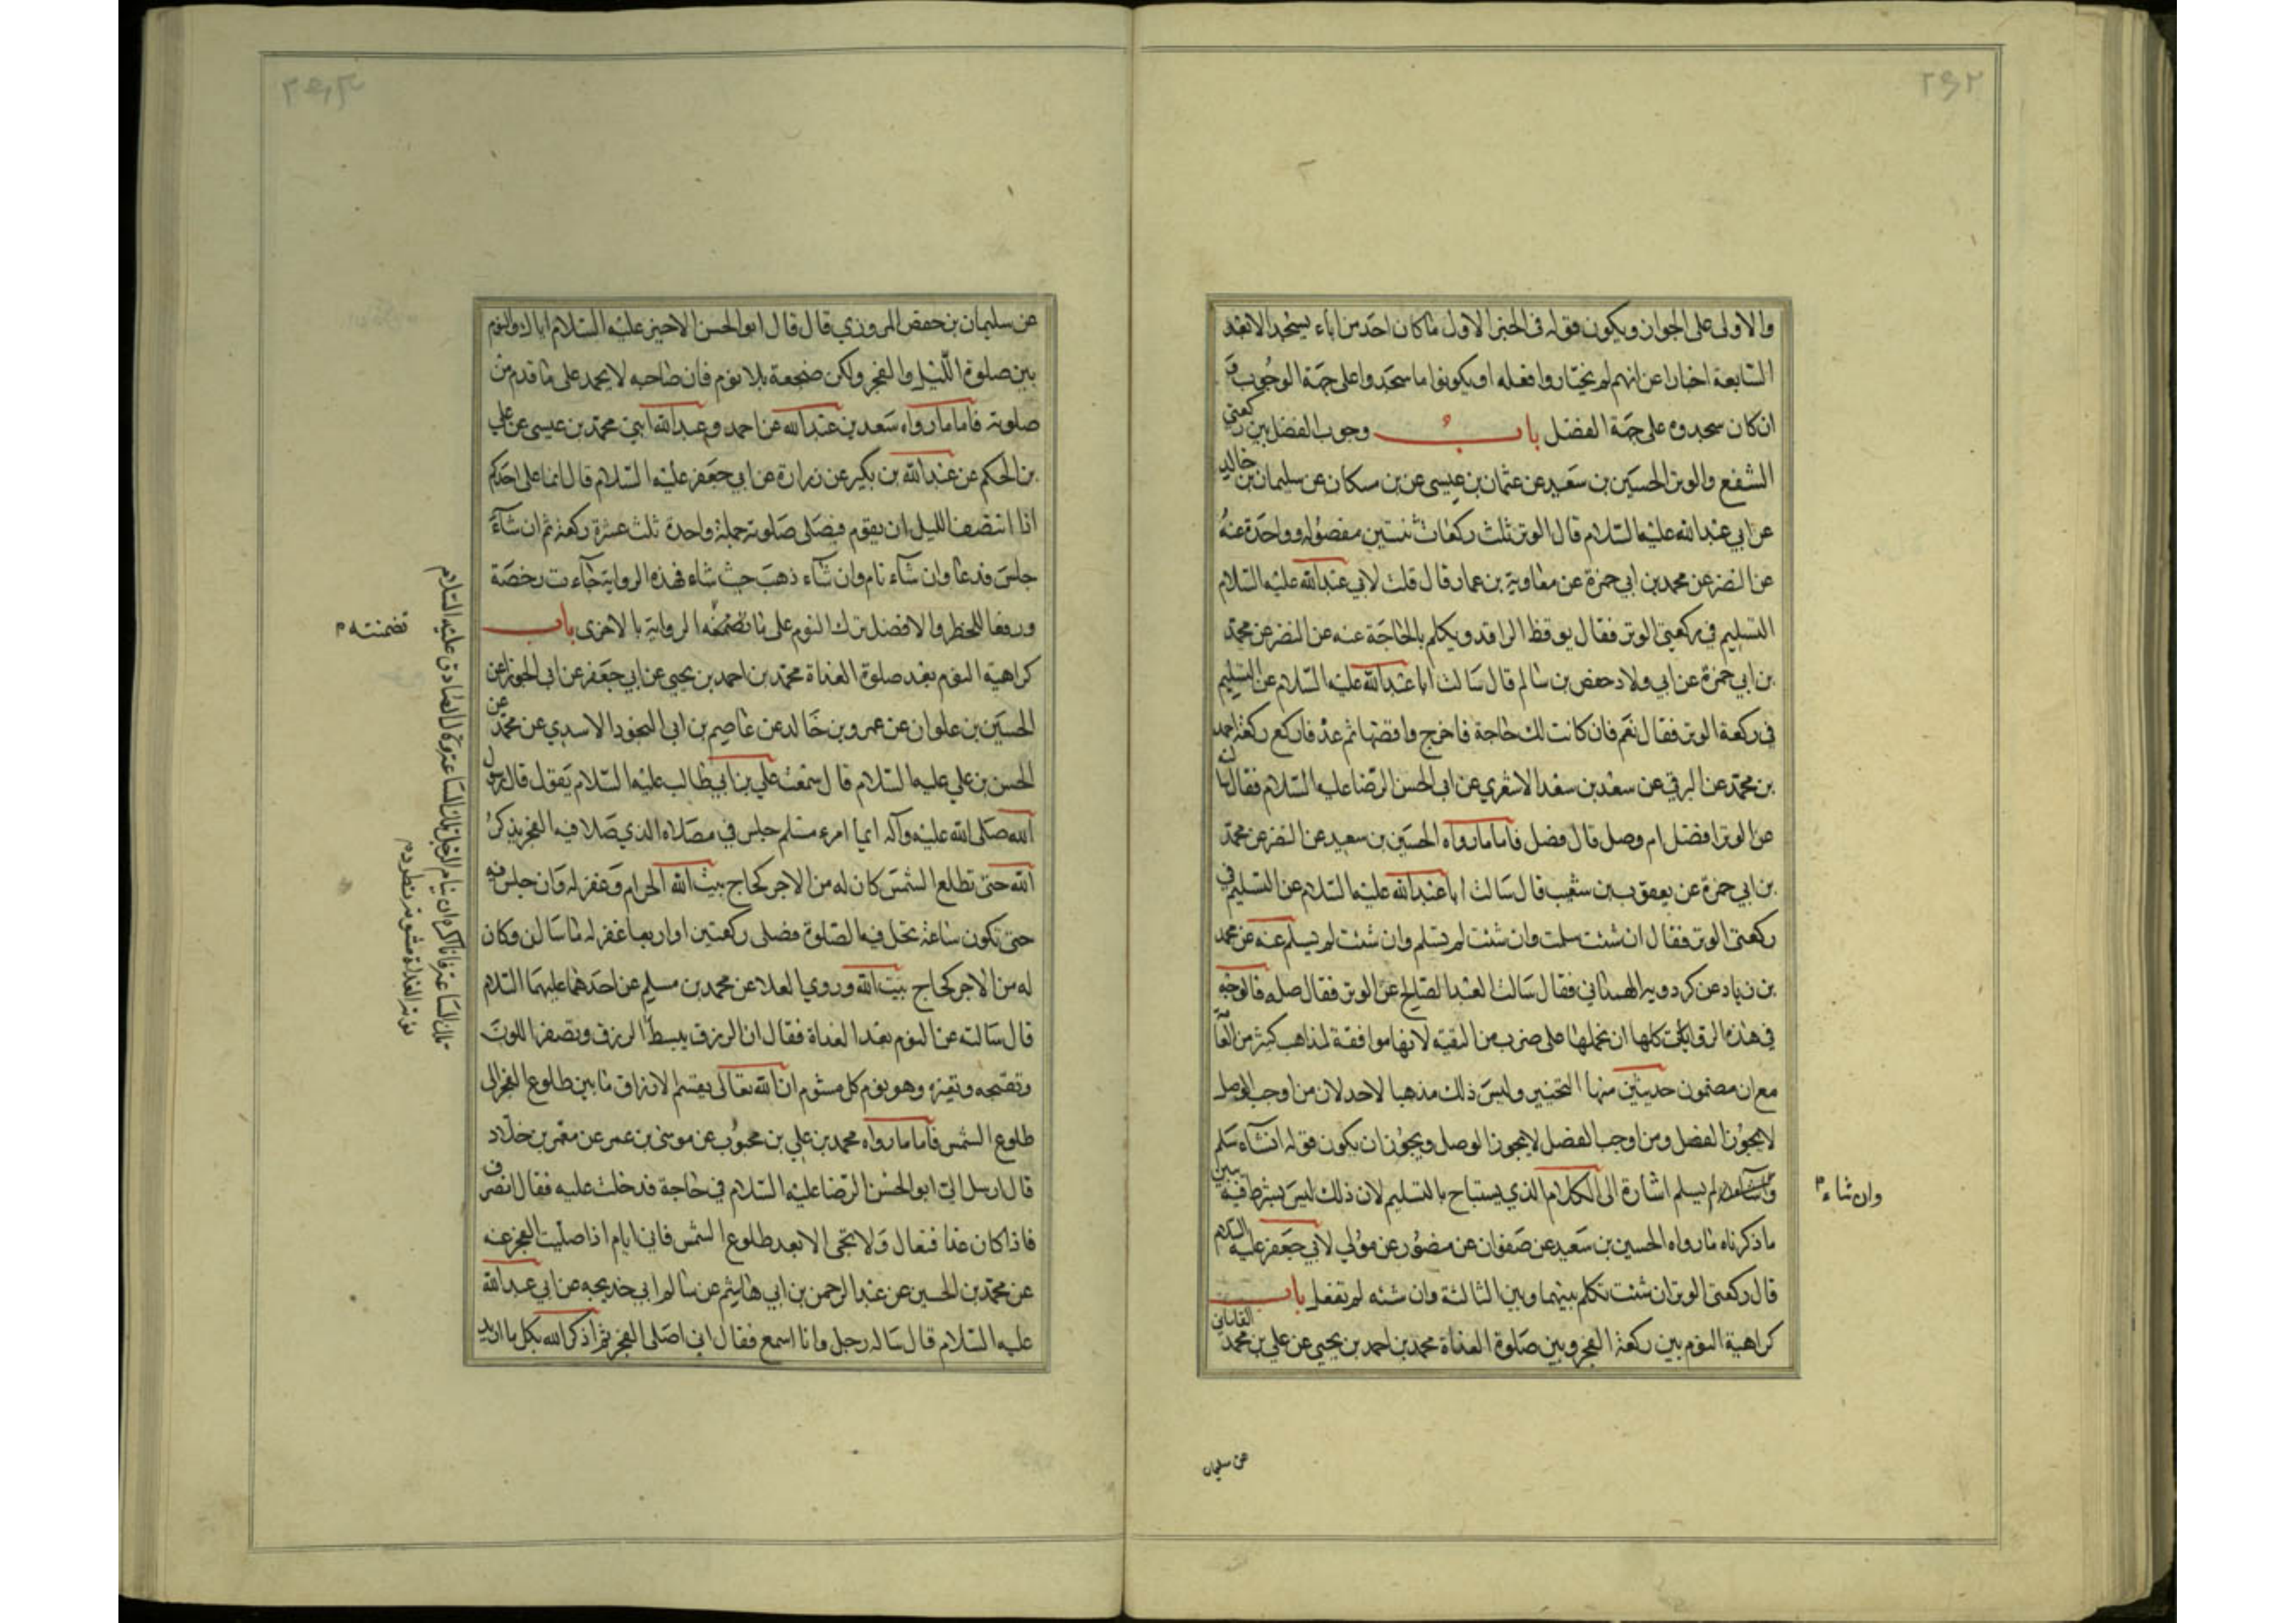 ٢٩٢
والاولى على الجواز ويكون قوله في الخبر الاول ما كان احد من اباء يسجد الا بعد
السابعة اخبارا عن انهم لم يختاروا فعله او يكونوا ما سجدوا على جهة الوجوب و
ان كان سجدوه على جهة الفضل باب وجوب الفصل بين ركعتي
الشفع والوتر الحسين بن سعيد عن عثمان بن عيسى عن بن مسكان عن سليمان بن خالد
عن ابي عبد الله عليه السلام قال الوتر ثلث ركعات ثنتين مفصوله وواحدة عنه
عن النضر عن محمد بن ابي حمزة عن معاوية بن عمار قال قلت لابي عبد الله عليه السلام
التسليم في ركعتي الوتر فقال يوقظ الراقد ويكلم بالحاجة عنه عن النضر عن محمد
بن ابي حمزة عن ابي ولاد حفص بن سالم قال سالت ابا عبد الله عليه السلام عن التسليم
في ركعة الوتر فقال نعم فان كانت لك حاجة فاخرج واقضها ثم عد فاركع ركعة احمد
بن محمد عن البرقي عن سعد بن سعد الاشعري عن ابي الحسن الرضا عليه السلام فقال سالته
عن الوتر افضل ام وصل قال فصل فاما ما رواه الحسين بن سعيد عن النضر عن محمد
بن ابي حمزة عن يعقوب بن شعيب قال سالت ابا عبد الله عليه السلام عن التسليم في
ركعتي الوتر فقال ان شئت سلمت وان شئت لم تسلم وان شئت لم تسلم عنه عن محمد
بن زياد عن كردويه الهمداني فقال سالت العبد الصالح عن الوتر فقال صله فالوجه
في هذه الروايات كلها ان نحملها على ضرب من التقية لانها موافقة لمذاهب كثير من العامة
مع ان مضمون حديثين منها التخيير وليس ذلك مذهبا لاحد لان من اوجب الوصل
لا يجوز الفصل ومن اوجب الفصل لا يجوز الوصل ويجوز ان يكون قوله ان شاء سلم
لم يسلم اشارة الى الكلام الذي يستباح بالتسليم لان ذلك ليس بشرط فيه يبين
وان شاء م
ما ذكرناه ما رواه الحسين بن سعيد عن صفوان عن منصور عن مولي لابي جعفر عليه السلام
قال ركعتي الوتر ان شئت تكلم بينهما وبين الثالثة وان شئته لم تفعل باب
كراهية النوم بين ركعة الفجر وبين صلوة الغداة محمد بن احمد بن يحيى عن علي بن محمد القاساني
عن سليمان
٢٩٣
عن سليمان بن حفص المروزي قال قال ابو الحسن الاخير عليه السلام اياك والنوم
بين صلوة الليل والفجر ولكن ضجعة بلا نوم فان صاحبه لا يحمد على ما قدم من
صلوته فاما ما رواه سعد بن عبد الله عن احمد وعبد الله ابني محمد بن عيسى عن علي
بن الحكم عن عبد الله بن بكير عن زرارة عن ابي جعفر عليه السلام قال انما على احدكم
اذا انتصف الليل ان يقوم فيصلي صلوته جملة واحدة ثلث عشرة ركعة ثم ان شآء
جلس فدعا وان شآء نام وان شآء ذهب حيث شاء فهذه الرواية جاءت رخصة
ورفعا للحظر والافضل ترك النوم على ما تضمنه الرواية بالاخرى باب
تضمنته م
كراهية النوم بعد صلوة الغداة محمد بن احمد بن يحيى عن ابي جعفر عن ابي الجوزا عن
الحسين بن علوان عن عمرو بن خالد عن عاصم بن ابي النجود الاسدي عن محمد عن
الحسن بن علي عليه السلام قال سمعت علي بن ابي طالب عليه السلام يقول قال رسول
الله صلى الله عليه وآله ايما امرء مسلم جلس في مصلاه الذي صلا فيه الفجر يذكر
الله حتى تطلع الشمس كان له من الاجر كحاج بيت الله الحرام وغفر له وان جلس فيه
حتى تكون ساعة تحل فيها الصلوة فصلى ركعتين او اربعا غفر له ما سالف وكان
له من الاجر كحاج بيت الله وروي العلا عن محمد بن مسلم عن احدهما عليهما السلام
قال سالته عن النوم بعد الغداة فقال ان الرزق يبسط الرزق وتصفر اللون
وتقبحه وتغيره وهو نوم كل مشوم ان الله تعالى يقسم الارزاق ما بين طلوع الفجر الى
طلوع الشمس فاما ما رواه محمد بن علي بن محبوب عن موسى بن عمر عن معمر بن خلاد
قال ارسل الي ابو الحسن الرضا عليه السلام في حاجة فدخلت عليه فقال انصرف
فاذا كان غدا فتعال ولا تجئ الا بعد طلوع الشمس فاني انام اذا صليت الفجر عنه
عن محمد بن الحسين عن عبد الرحمن بن ابي هاشم عن سالم ابي خديجه عن ابي عبد الله
عليه السلام قال ساله رجل وانا اسمع فقال اني اصلي الفجر ثم اذكر الله بكل ما اريد
تلك الساعة فانا اكره ان ينام الرجل تلك الساعة قال الصادق عليه السلام
نومة الغداة مشومة تطرد م